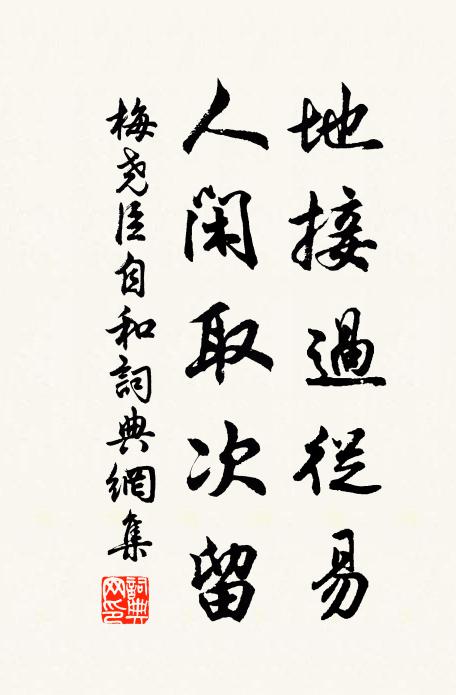 地接過從易
人閑取次留
梅尧臣自和詞典網集
詞典网印